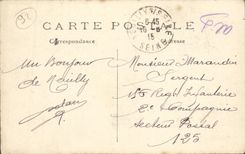 92
CARTE POSTALE
F.M
Correspondance
Adresse
6-45
15
SEINE
Un Bonjour
de Neuilly
Monsieur Marandin
Sergent
155 Regt Infanterie
2e Compagnie
Secteur Postal
125